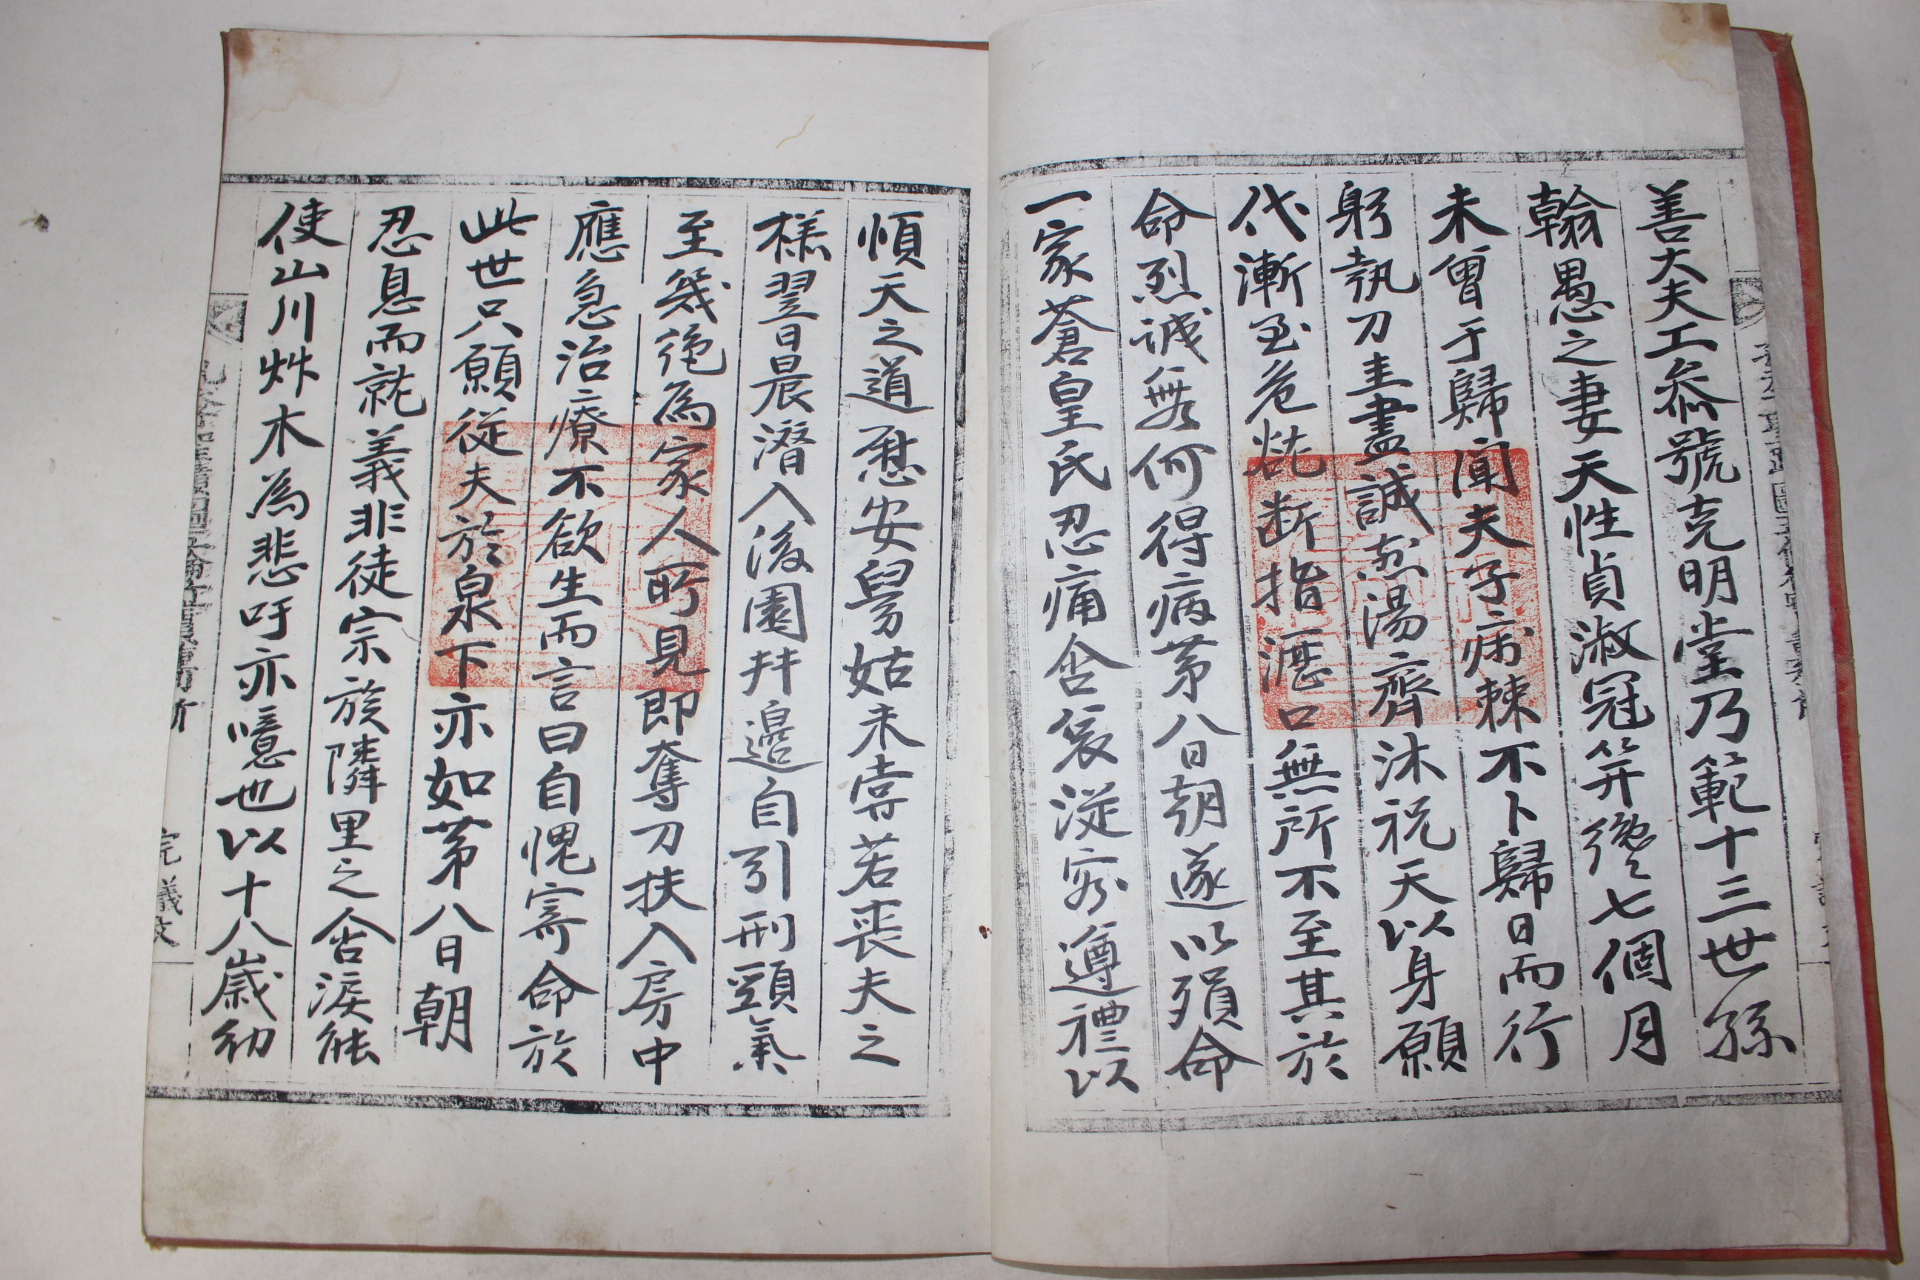 善大夫工參號克明堂乃範十三世孫
翰愚之妻天性貞淑冠笄纔七個月
未曾于歸聞夫子病棘不卜歸日而行
躬執刀圭盡誠煎湯齊沐祝天以身願
代漸至危
断指瀝口無所不至其於
命烈誠無何得病第八日朝遂以殞命
一家蒼皇氏忍痛含哀從容遵禮以
順天之道慰安舅姑未嘗若丧夫之
樣翌日晨潛入後園井邊自引刑頸氣
至幾絶為家人所見即奪刀扶入房中
應急治療不欲生而言曰自愧寄命於
此世只願從夫於泉下亦如第八日朝
忍息而就義非徒宗族隣里之含淚能
使山川艸木為悲吁亦噫也以十八歲幼
完議文